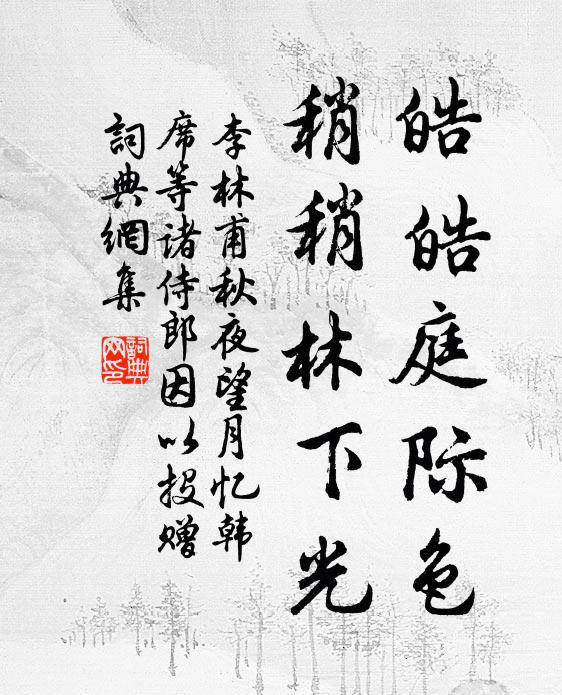 皓皓庭际色
稍稍林下光
李林甫秋夜望月忆韩
席等诸侍郎因以投赠
詞典網集
詞典
网印